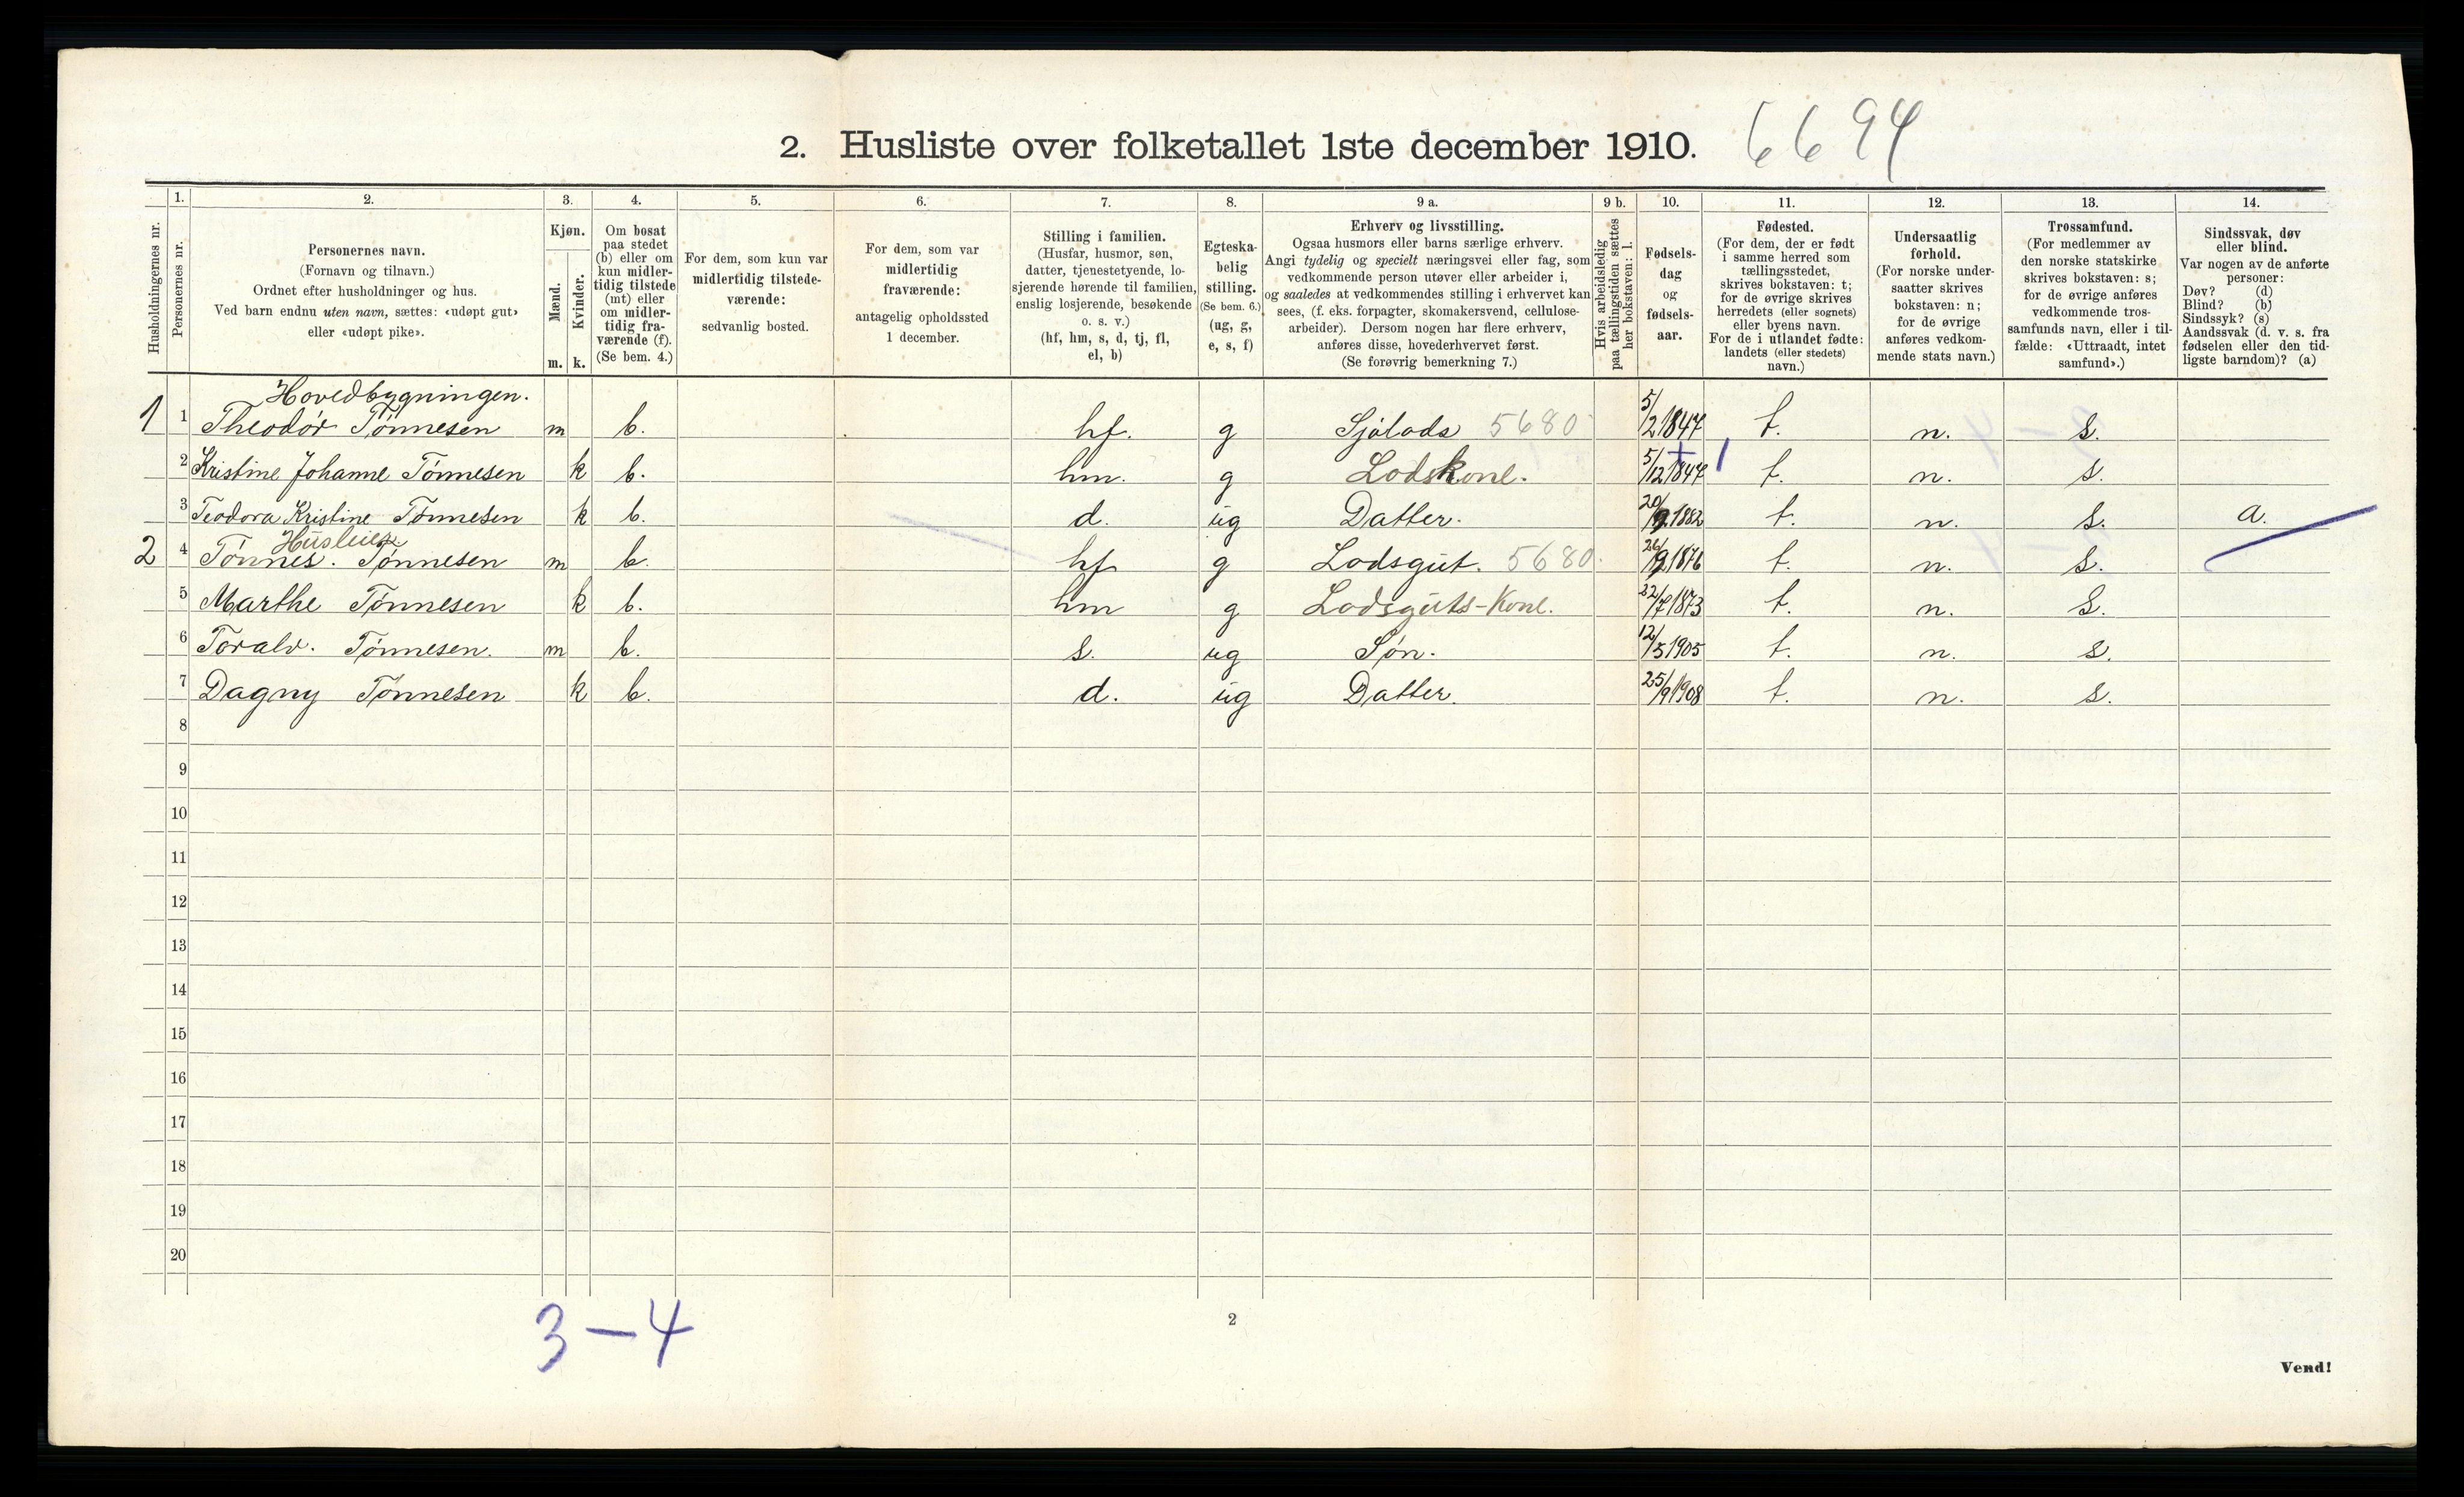 2. Husliste over folketallet 1ste december 1910. 6694
Husholdningernes nr.
1.
Personernes nr.
2.
Personernes navn.
(Fornavn og tilnavn.)
Ordnet efter husholdninger og hus.
Ved barn endnu uten navn, sættes: «udøpt gut»
eller «udøpt pike».
3.
Kjøn.
Mænd.
Kvinder.
m. k.
4.
Om bosat
paa stedet
(b) eller om
kun midler-
tidig tilstede
(mt) eller
om midler-
tidig fra-
værende (f).
(Se bem. 4.)
5.
For dem, som kun var
midlertidig tilstede-
værende:
sedvanlig bosted.
6.
For dem, som var
midlertidig
fraværende:
antagelig opholdssted
1 december.
7.
Stilling i familien.
(Husfar, husmor, søn,
datter, tjenestetyende, lo-
sjerende hørende til familien,
enslig losjerende, besøkende
o. s. v.)
(hf, hm, s, d, tj, fl,
el, b)
8.
Egteska-
belig
stilling.
(Se bem. 6.)
(ug, g,
e, s, f)
9 a.
Erhverv og livsstilling.
Ogsaa husmors eller barns særlige erhverv.
Angi tydelig og specielt næringsvei eller fag, som
vedkommende person utøver eller arbeider i,
og saaledes at vedkommendes stilling i erhvervet kan
sees, (f. eks. forpagter, skomakersvend, cellulose-
arbeider). Dersom nogen har flere erhverv,
anføres disse, hovederhvervet først.
(Se forøvrig bemerkning 7.)
9 b.
Hvis arbeidsledig
paa tællingstiden sættes
her bokstaven: l.
10.
Fødsels-
dag
og
fødsels-
aar.
11.
Fødested.
(For dem, der er født
i samme herred som
tællingsstedet,
skrives bokstaven: t;
for de øvrige skrives
herredets (eller sognets)
eller byens navn.
For de i utlandet fødte:
landets (eller stedets)
navn.)
12.
Undersaatlig
forhold.
(For norske under-
saatter skrives
bokstaven: n;
for de øvrige
anføres vedkom-
mende stats navn.)
13.
Trossamfund.
(For medlemmer av
den norske statskirke
skrives bokstaven: s;
for de øvrige anføres
vedkommende tros-
samfunds navn, eller i til-
fælde: «Uttraadt, intet
samfund».)
14.
Sindssvak, døv
eller blind.
Var nogen av de anførte
personer:
Døv? (d)
Blind? (b)
Sindssyk? (s)
Aandssvak (d. v. s. fra
fødselen eller den tid-
ligste barndom)? (a)
Hovedbygningen.
1 1 Theodór Tónnesen m b. hf. g Sjólods 5680 5/2 1847 t. n. s.
2 Kristine Johanne Tónnesen k b. hm. g Lodskone. 5/12 1847 t. n. s.
3 Teodora Kristine Tónnesen k b. d. ug Datter. 1882 t. n. s. a.
Husleier
2 4 Tónnes. Tónnesen m b. hf g Lodsgut. 5680. 1876 t. n. s.
5 Marthe Tónnesen k b. hm g Lodsguts-Kone. 22/7 1873 t. n. s.
6 Toralv. Tónnesen. m b. s. ug Søn. 12/5 1905 t. n. s.
7 Dagny Tónnesen k b. d. ug Datter. 25/9 1908 t. n. s.
8
9
10
11
12
13
14
15
16
17
18
19
20
3-4
2
Vend!